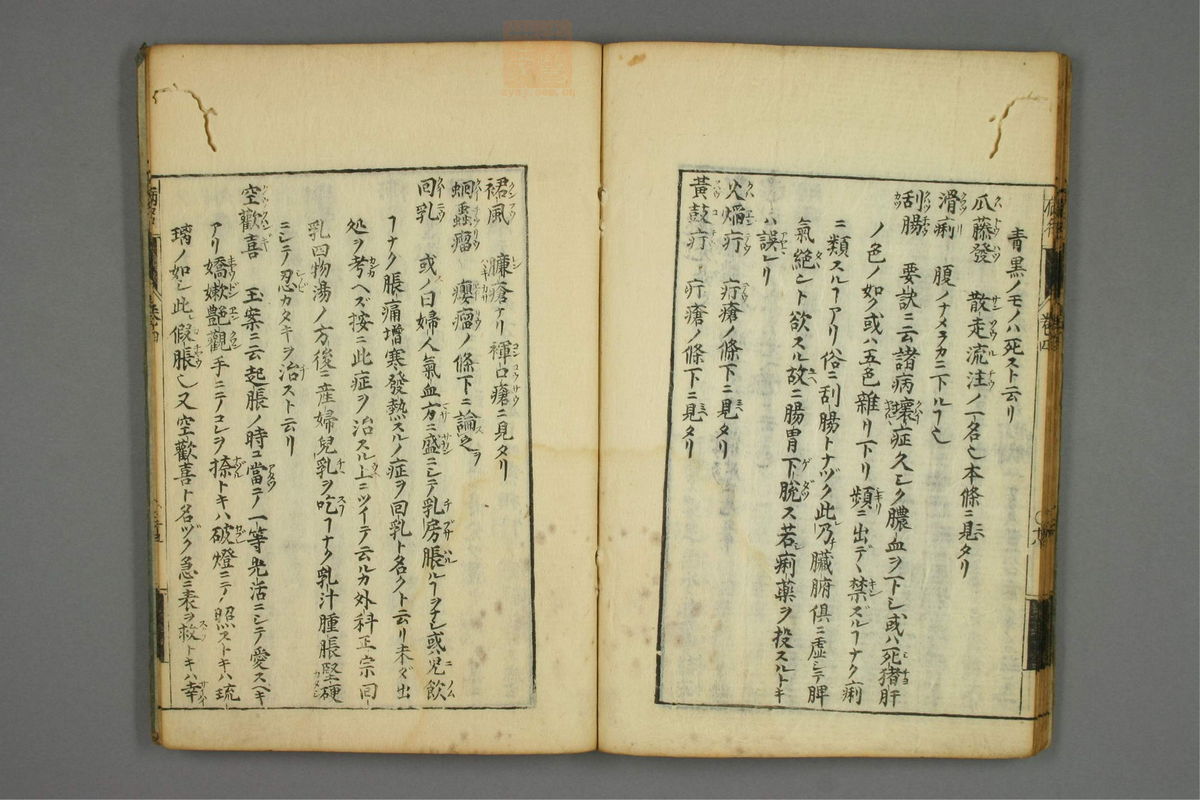 青黒ノモノハ死スト云リ
爪藤發　散走流注ノ一名也本條ニ見タリ
滑痢　腹ノナメラカニ下ルヿ也
刮腸　要訣ニ云諸病壞症久シク膿血ヲ下シ或ハ死猪肝
ノ色ノ如ク或ハ五色雜リ下リ頻ニ出デヽ禁ズルヿナク痢
ニ類スルヿアリ俗ニ刮腸トナヅク此乃臟腑俱ニ虛シテ脾
氣絶ント欲スル故ニ腸胃下リ脫ス若痢藥ヲ投スルトキ
ハ誤レリ
火焰疔　疔瘡ノ條下ニ見タリ
黃鼓疔　疔瘡ノ條下ニ見タリ
裙風　臁瘡ナリ褌口瘡ニ見タリ
蚵蟲瘤　癭瘤ノ條下ニ論之
回乳　或ノ曰婦人氣血方ニ盛ニシテ乳房脹ルヿヲナシ或ハ児飮
ヿナク脹痛增寒發熱スルノ症ヲ回乳ト名クト云リ未ダ出
処ヲ考ヘズ按ニ此症ヲ治スル上ニツイテ云ルカ外科正宗回
乳四物湯ノ方後ニ産婦兒乳ヲ吃ヿナク乳汁腫脹堅硬
ニシテ忍カタキヲ治スト云リ
空歡喜　玉案ニ云起脹ノ時ニ當テ一等光活ニシテ愛スベキ
アリ嬌嫩艶觀手ニテコレヲ捺トキハ破燈ニテ照ストキハ琉
璃ノ如シ此假脹也又空歡喜ト名ヅク急ニ表ヲ救トキハ幸